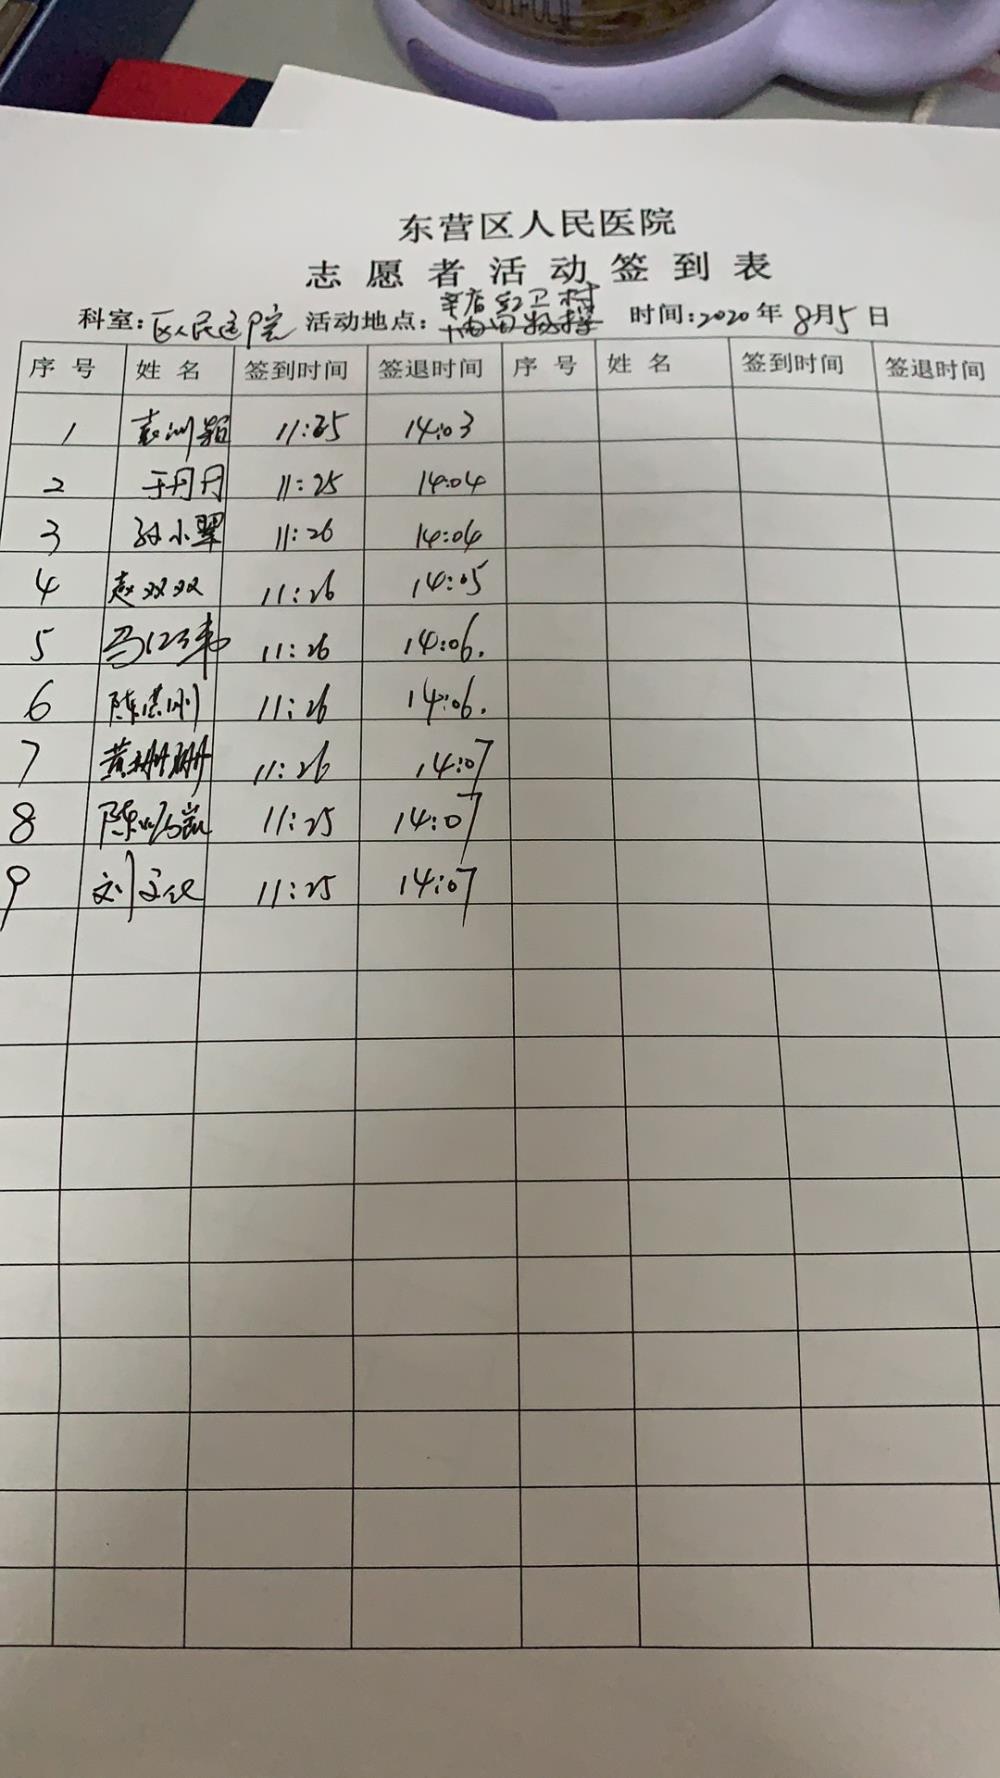 东营区人民医院
志愿者活动签到表
科室:区人民医院 活动地点:辛店红卫村 时间:2020年8月5日
序号 姓名 签到时间 签退时间 序号 姓名 签到时间 签退时间
1 11:25 14:03
2 于丹丹 11:25 14:04
3 孙小翠 11:26 14:04
4 赵双双 11:26 14:05
5 马 11:26 14:06.
6 陈 刚 11:26 14:06.
7 黄珊珊 11:26 14:07
8 陈 11:25 14:07
9 刘文 11:25 14:07